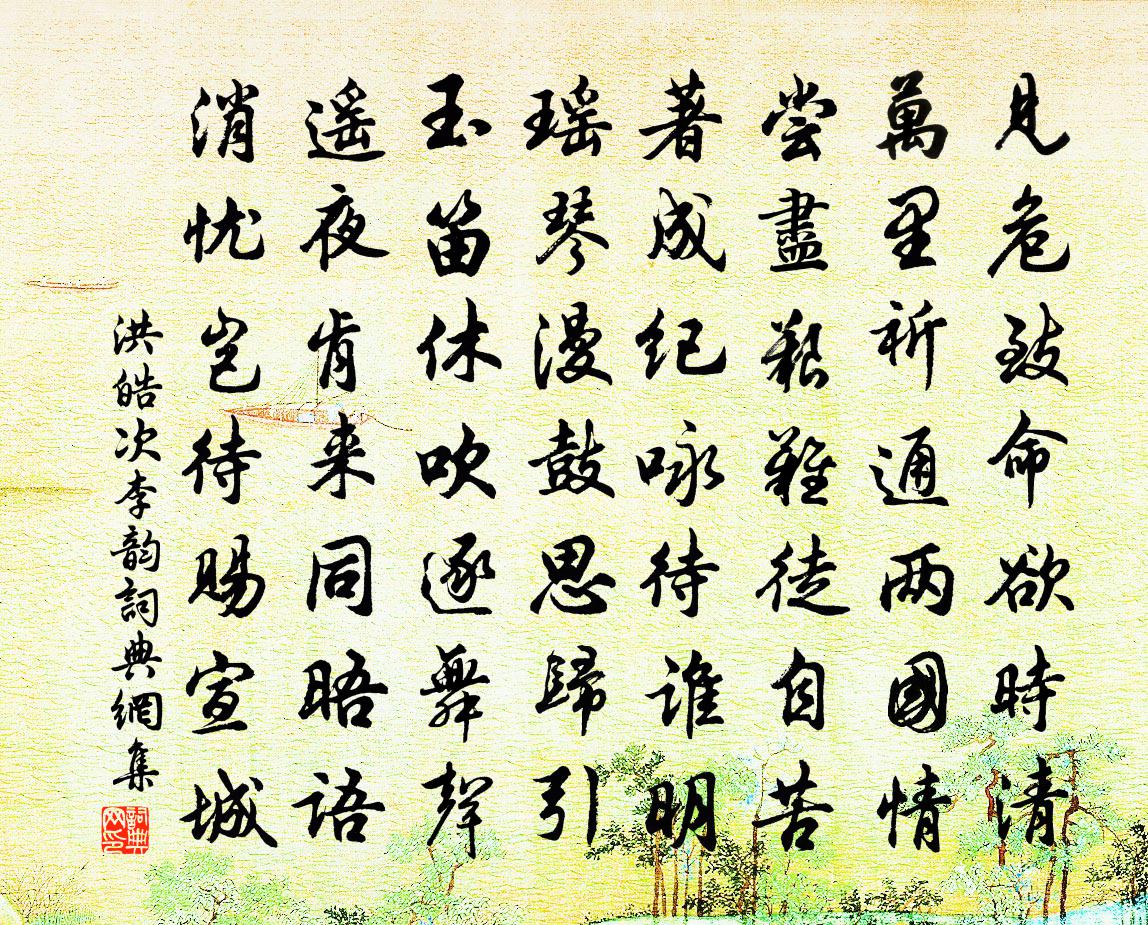 見危致命欲時清
萬里祈通两國情
尝盡艱難徒自苦
著成纪咏待谁明
瑶琴漫鼓思歸引
玉笛休吹逐舞聲
遥夜肯来同晤语
消忧岂待赐宣城
洪皓次李韵詞典網集
詞典
网印